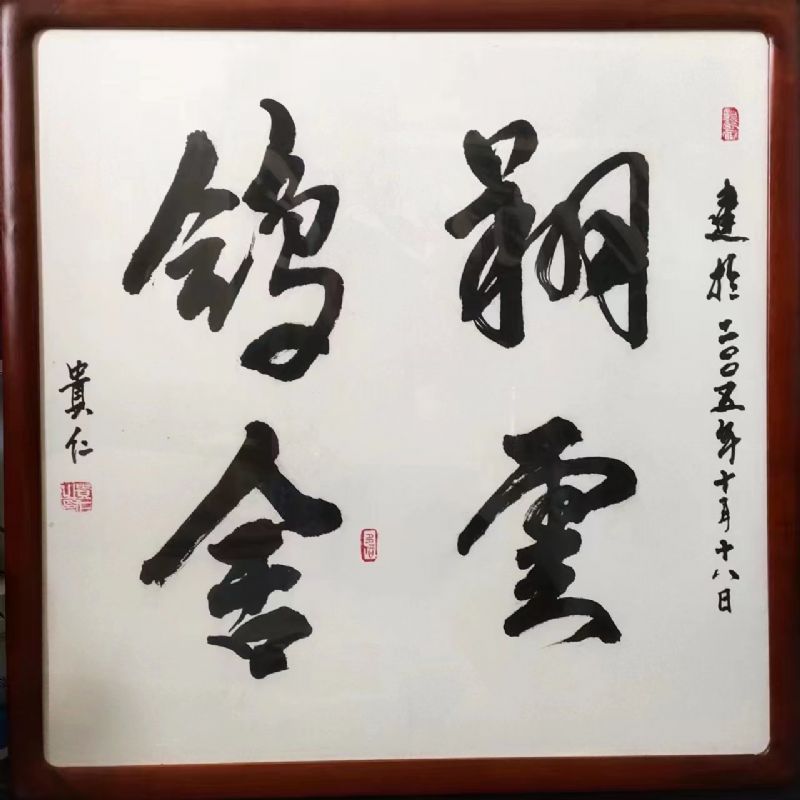 翱雲
鸽舍
建於二〇〇五年十月十八日
貴仁